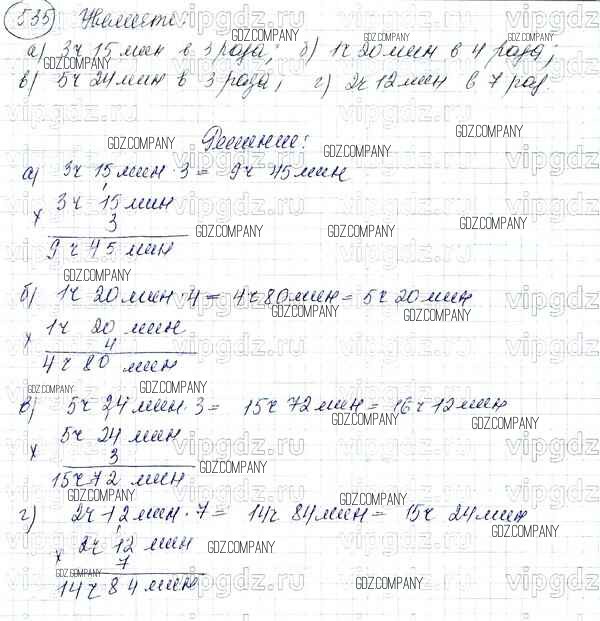 535 Увеличьте:
а) 3ч 15мин в 3 раза; б) 1ч 20мин в 4 раза;
в) 5ч 24мин в 3 раза; г) 2ч 12мин в 7 раз.
Решение:
а) 3ч 15мин · 3 = 9ч 45мин
3ч 15мин
× 3
9ч 45 мин
б) 1ч 20мин · 4 = 4ч 80мин = 5ч 20мин
1ч 20 мин
× 4
4ч 80 мин
в) 5ч 24 мин · 3 = 15ч 72мин = 16ч 12мин
5ч 24 мин
× 3
15ч 72 мин
г) 2ч 12мин · 7 = 14ч 84мин = 15ч 24мин
2ч 12 мин
× 7
14ч 84 мин
vipgdz.ru
GDZ.COMPANY